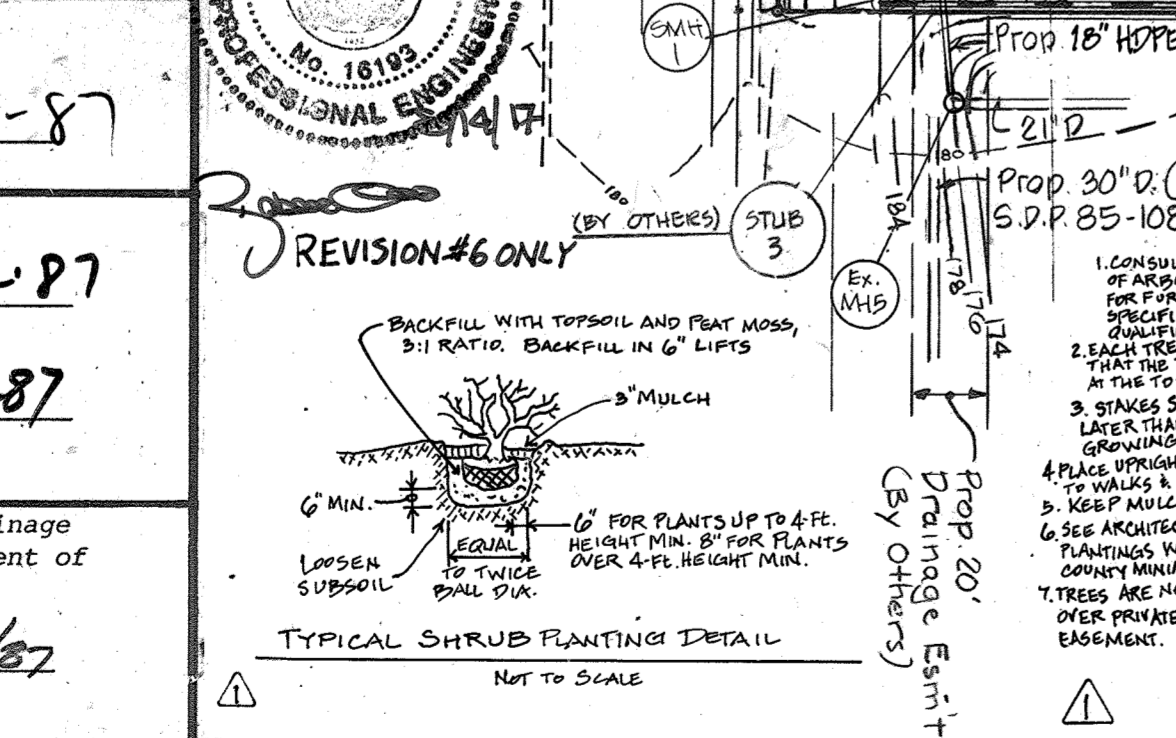 No. 16193
PROFESSIONAL ENGINEER
/14/17
REVISION #6 ONLY
-87
-87
87
inage
ent of
/87
SMH
1
Prop. 18" HDPE
21" D
180
180
(BY OTHERS)
STUB
3
Ex.
MH5
184
178
176
174
Prop. 30" D. (
S.D.P. 85-108
BACKFILL WITH TOPSOIL AND PEAT MOSS,
3:1 RATIO. BACKFILL IN 6" LIFTS
3" MULCH
6" MIN.
LOOSEN
SUBSOIL
EQUAL
TO TWICE
BALL DIA.
6" FOR PLANTS UP TO 4-FT.
HEIGHT MIN. 8" FOR PLANTS
OVER 4-FT. HEIGHT MIN.
TYPICAL SHRUB PLANTING DETAIL
NOT TO SCALE
1
Prop. 20'
Drainage Esm't
(By Others)
1. CONSUL
OF ARBO
FOR FUR
SPECIFI
QUALIFI
2. EACH TRE
THAT THE
AT THE TO
3. STAKES S
LATER THA
GROWING
4. PLACE UPRIGH
TO WALKS &
5. KEEP MULC
6. SEE ARCHITEC
PLANTINGS W
COUNTY MINIM
7. TREES ARE NO
OVER PRIVATE
EASEMENT.
1